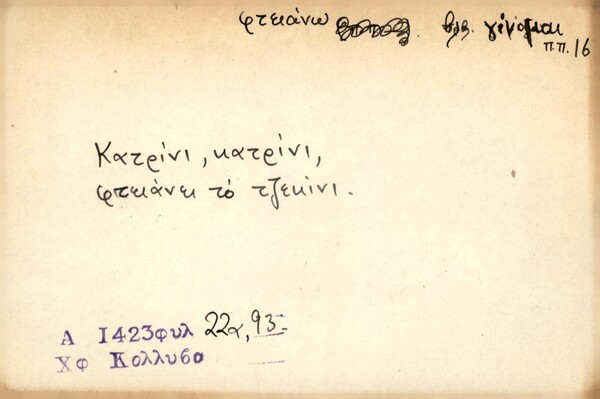 φτειάνω βλ. γίνομαι
π.π. 16
Κατρίνι, κατρίνι,
φτειάνει τὸ τζεκίνι.
Α 1423φυλ 22α, 93
Χφ Κολλυβα